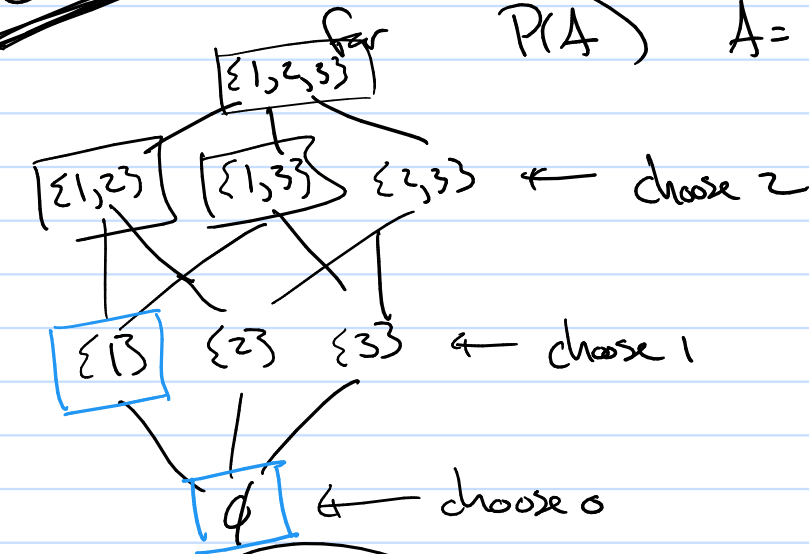 for P(A) A=
{1,2,3}
{1,2} {1,3} {2,3} ← choose 2
{1} {2} {3} ← choose 1
∅ ← choose 0